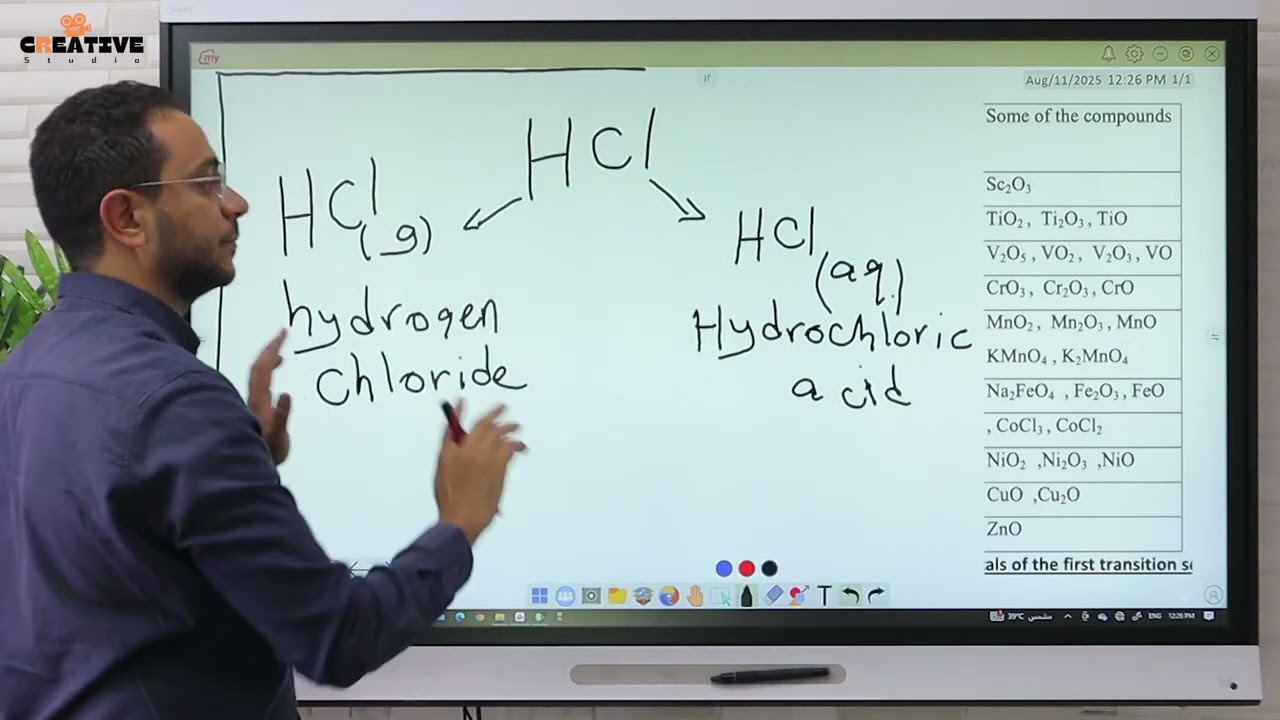 CREATIVE
Studio
SMART
my
Aug/11/2025 12:26 PM 1/1
HCl
HCl(g)
hydrogen
chloride
HCl(aq.)
Hydrochloric
acid
Some of the compounds
Sc₂O₃
TiO₂ , Ti₂O₃ , TiO
V₂O₅ , VO₂ , V₂O₃ , VO
CrO₃ , Cr₂O₃ , CrO
MnO₂ , Mn₂O₃ , MnO
KMnO₄ , K₂MnO₄
Na₂FeO₄ , Fe₂O₃ , FeO
, CoCl₃ , CoCl₂
NiO₂ ,Ni₂O₃ ,NiO
CuO ,Cu₂O
ZnO
als of the first transition s
T
39°C مشمس
ENG 12:26 PM